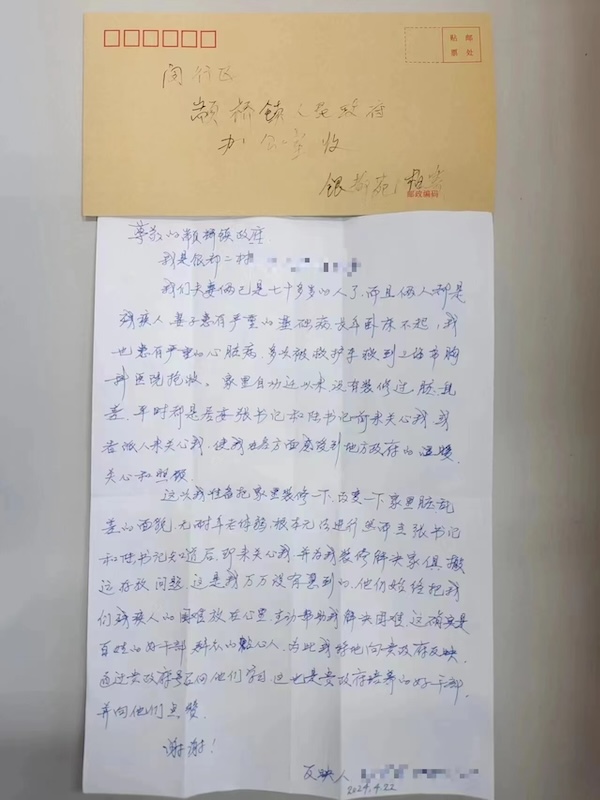 贴 邮
票 处
闵行区
颛桥镇人民政府
办公室收
银都苑
邮政编码
尊敬的颛桥镇政府
我是银都二村
我们夫妻俩已是七十多岁的人了,而且俩人都是
残疾人,妻子患有严重的基础病长年卧床不起,我
也患有严重的心脏病,多次被救护车救到上海市胸
科医院抢救。家里自动迁以来没有装修过,脏乱
差,平时都是居委张书记和陆书记前来关心我,或
者派人来关心我,使我在方面感受到地方政府的温暖,
关心和照顾
这次我准备把家里装修一下,改变一下家里脏乱
差的面貌,无耐年老体弱,根本无法进行,然而当张书记
和陆书记知道后,即来关心我并为我装修解决家俱搬
运存放问题,这是我万万没有想到的,他们始终把我
们残疾人的困难放在心里,主动帮助我解决困难,这确实是
百姓的好干部 群众的贴心人,为此我特地向贵政府反映,
通过贵政府号召向他们学习 这也是贵政府培养的好干部,
并向他们点赞
谢谢!
反映人
2024.4.22